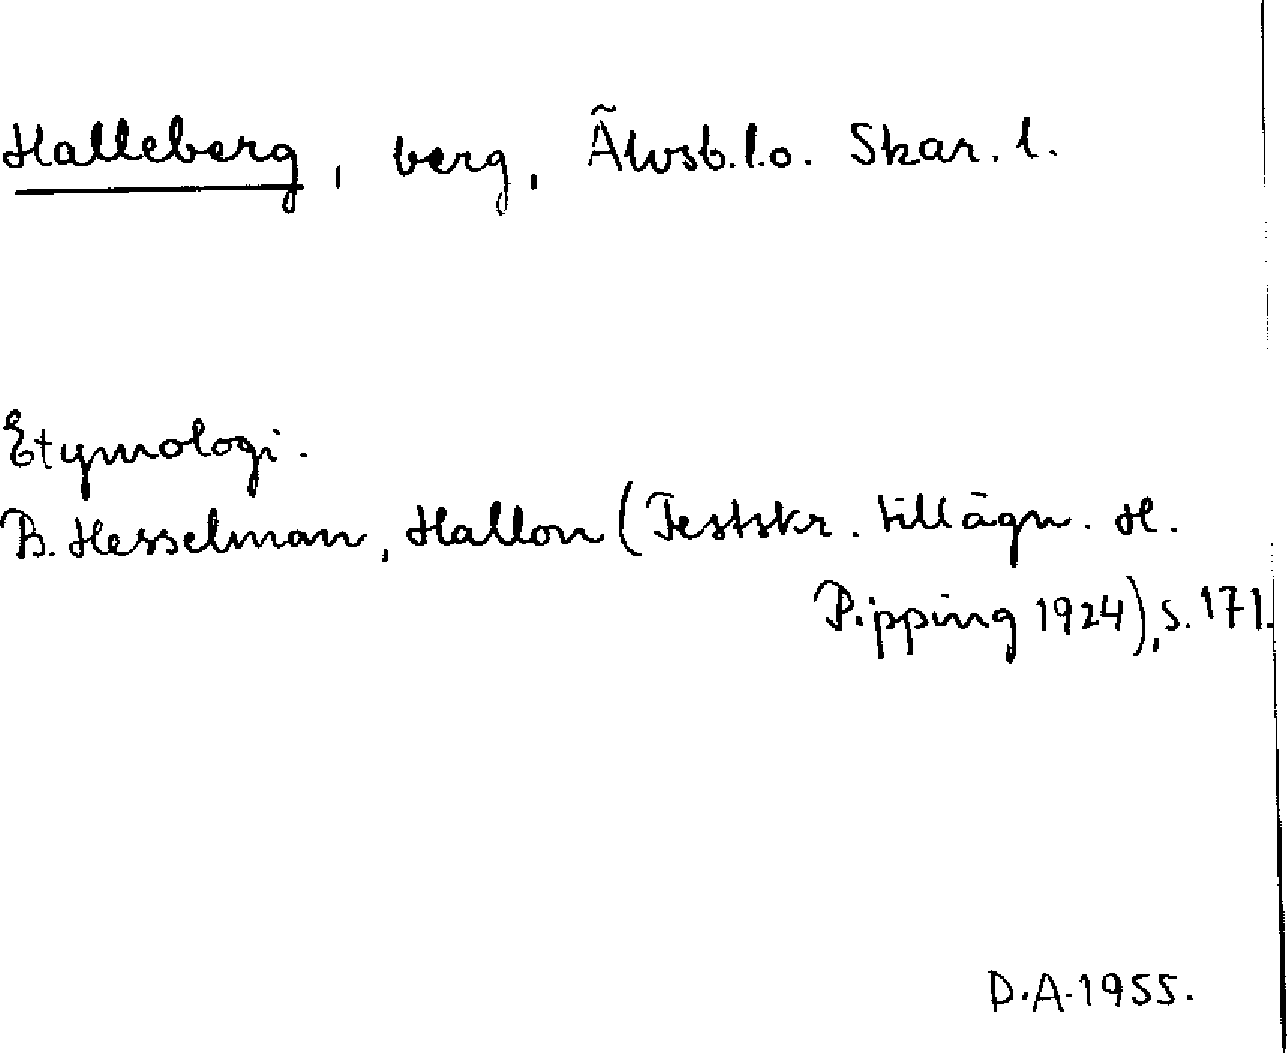 Halleberg, berg, Älvsb.l.o. Skar. l.
Etymologi.
B. Hesselman, Hallon (Festskr. tillägn. H.
Pipping 1924), s. 171.
D.A. 1955.